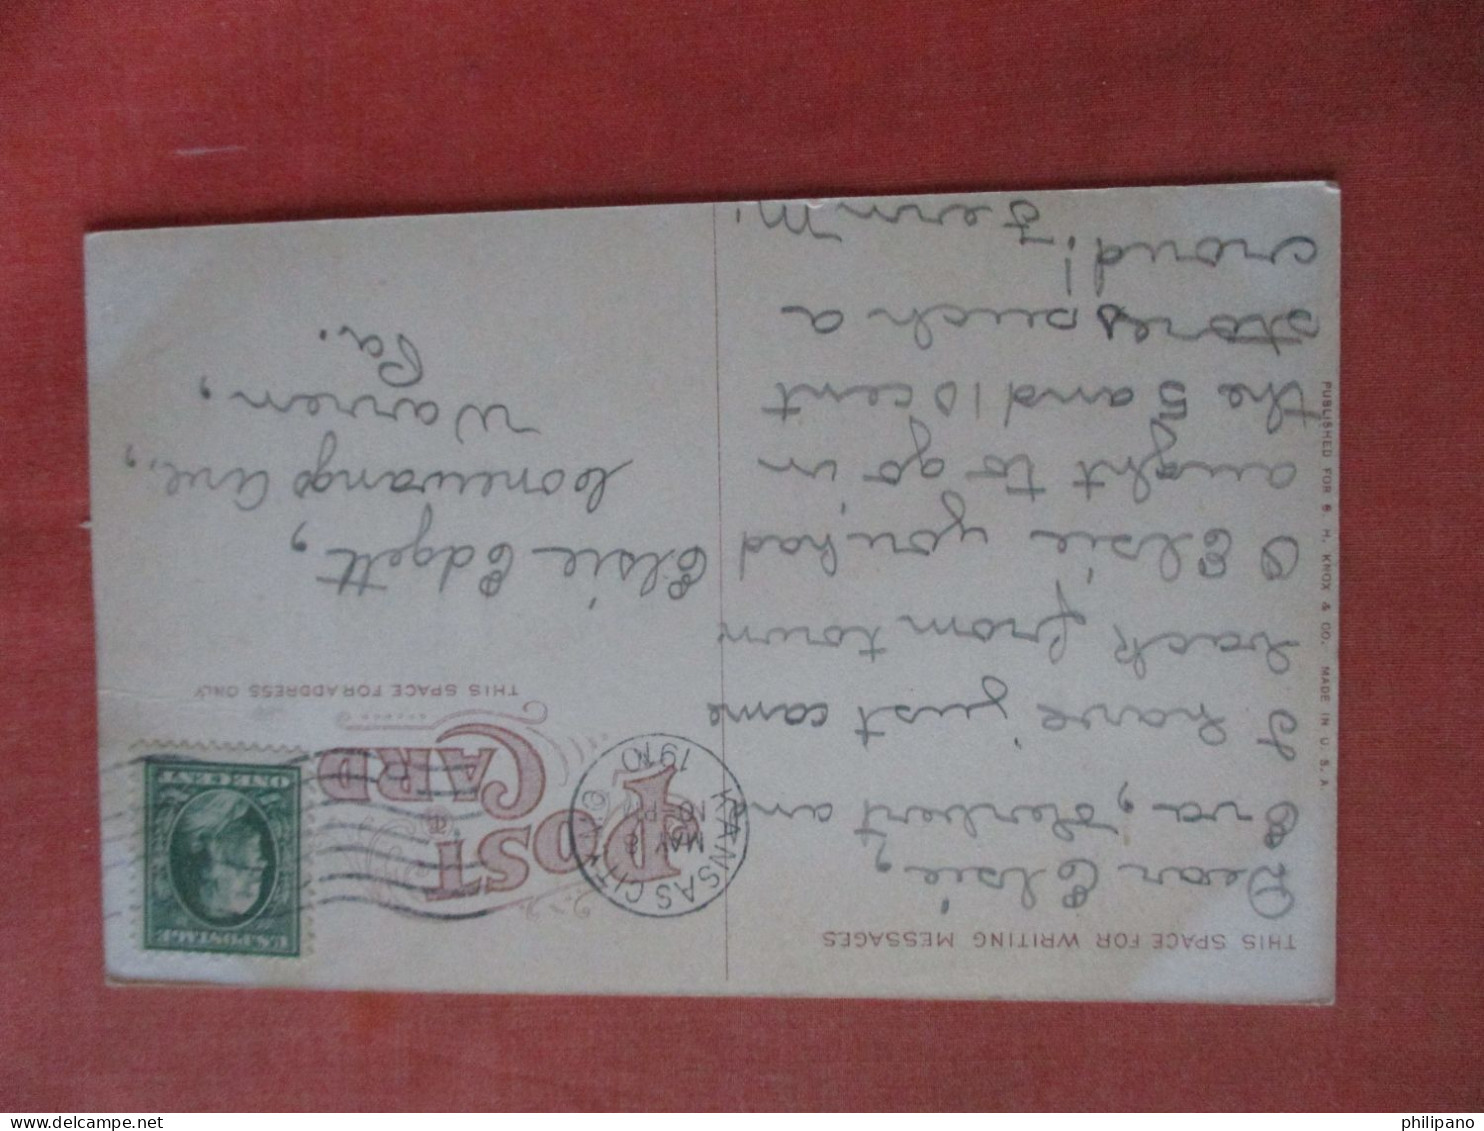 THIS SPACE FOR WRITING MESSAGES
Dear Elsie,
Ora, Herbert and
I have just came
back from town
O Elsie you had
aught to go in
the 5 and 10 cent
stores such a
croud!
Fern M.
POST
CARD
THIS SPACE FOR ADDRESS ONLY
KANSAS CITY
MAY 8
10-PM
1910
U.S. POSTAGE
ONE CENT
Elsie Edgett,
Conewango Ave.,
Warren,
Pa.
PUBLISHED FOR S. H. KNOX & CO. MADE IN U. S. A.
philipano